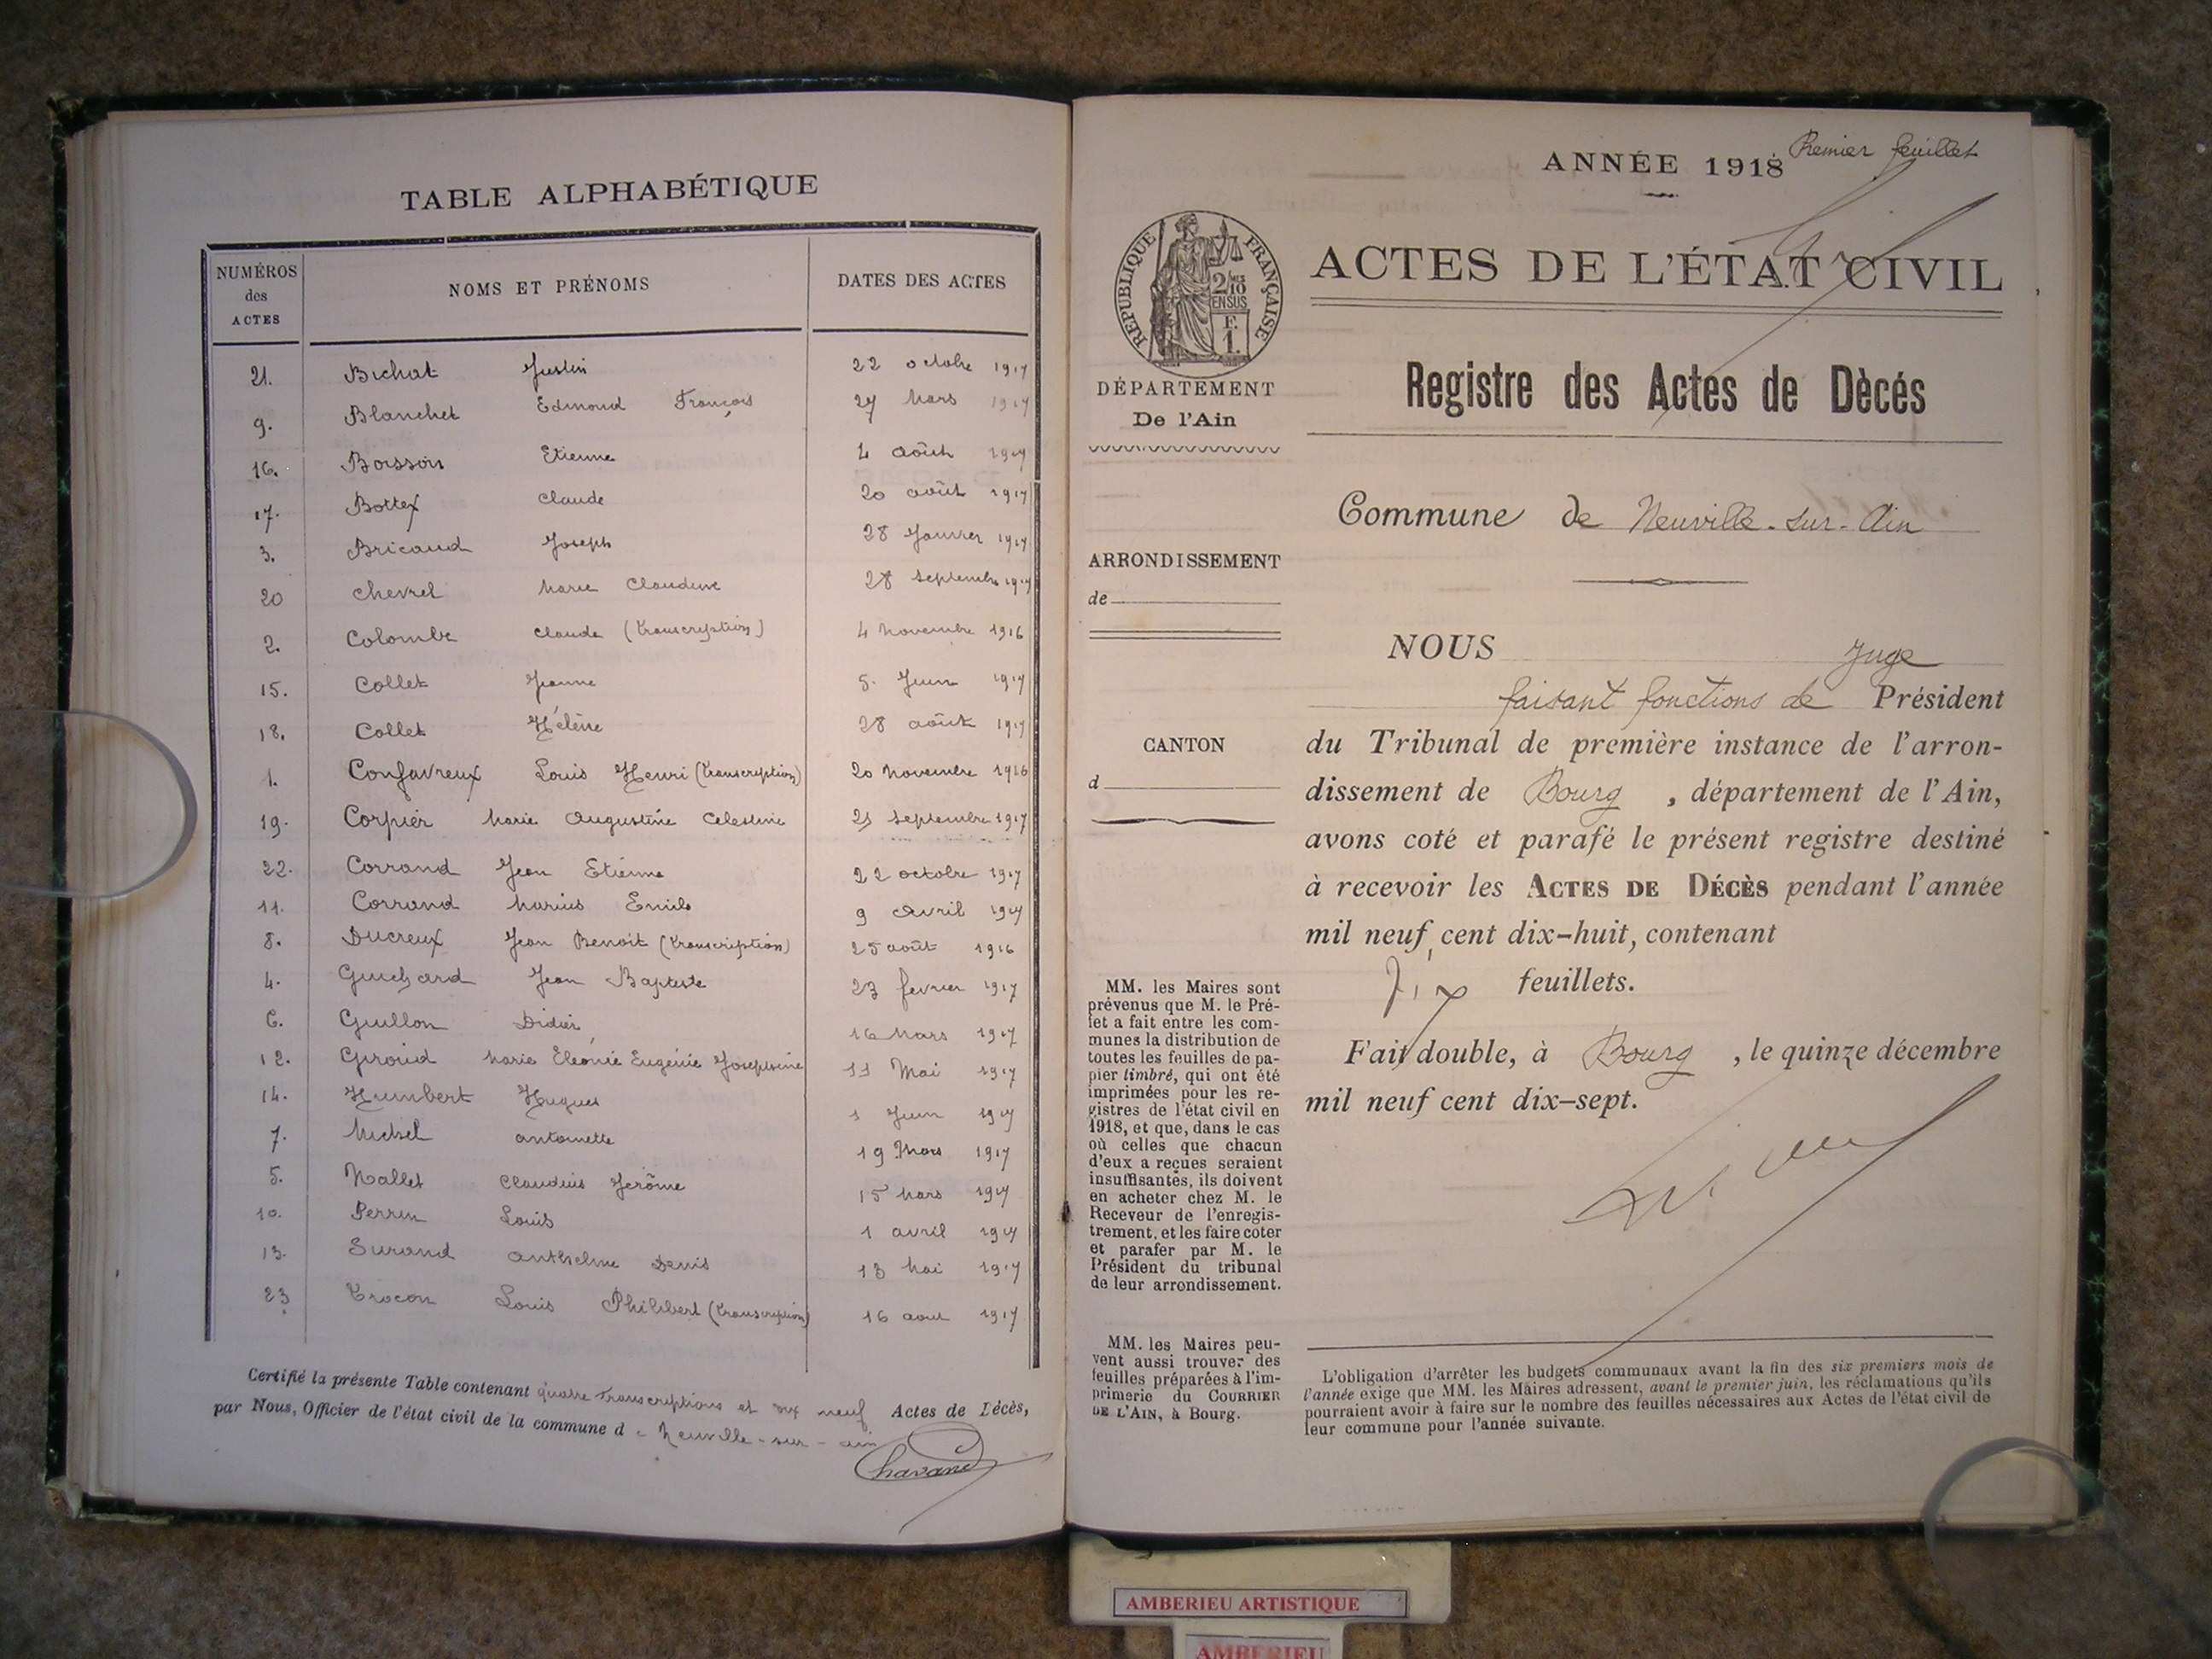 TABLE ALPHABÉTIQUE
NUMÉROS des ACTES NOMS ET PRÉNOMS DATES DES ACTES
21. Bichat Justin 22 octobre 1917
9. Blanchet Edmond François 27 Mars 1917
16. Boisson Etienne 4 août 1917
17. Bottex Claude 20 août 1917
3. Bricaud Joseph 28 Janvier 1917
20 Chevrel Marie Claudine 28 septembre 1917
2. Colombe Claude (transcription) 4 Novembre 1916
15. Collet Jeanne 5. Juin 1917
18. Collet Hélène 28 août 1917
1. Confavreux Louis Henri (transcription) 20 Novembre 1916
19. Corpier Marie Augustine Celestine 21 septembre 1917
22. Corrand Jean Etienne 22 octobre 1917
11. Corrand Marius Emile 9 Avril 1917
8. Ducreux Jean Benoit (transcription) 25 août 1916
4. Guichard Jean Baptiste 23 fevrier 1917
6. Guillon Didier 16 Mars 1917
12. Giroud Marie Eléonie Eugénie Josephine 11 Mai 1917
14. Humbert Hugues 1 Juin 1917
7. Michel antoinette 19 Mars 1917
5. Nallet Claudius Jérôme 15 Mars 1917
10. Perrin Louis 1 avril 1917
13. Surand Anthelme Denis 13 Mai 1917
23 Trocon Louis Philibert (transcription) 16 aout 1917
Certifié la présente Table contenant quatre transcriptions et dix neuf Actes de Décès,
par Nous, Officier de l'état civil de la commune d e Neuville-sur-ain
Chavand
ANNÉE 1918 Premier feuillet
ACTES DE L'ÉTAT CIVIL
Registre des Actes de Dècés
RÉPUBLIQUE FRANÇAISE
2/10 EN SUS
F. 1.
DÉPARTEMENT
De l'Ain
Commune de Neuville-sur-Ain
ARRONDISSEMENT
de
CANTON
d
NOUS Juge
faisant fonctions de Président
du Tribunal de première instance de l'arron-
dissement de Bourg, département de l'Ain,
avons coté et parafé le présent registre destiné
à recevoir les ACTES DE DÉCÈS pendant l'année
mil neuf cent dix-huit, contenant
Dix feuillets.
Fait double, à Bourg, le quinze décembre
mil neuf cent dix-sept.
MM. les Maires sont
prévenus que M. le Pré-
fet a fait entre les com-
munes la distribution de
toutes les feuilles de pa-
pier timbré, qui ont été
imprimées pour les re-
gistres de l'état civil en
1918, et que, dans le cas
où celles que chacun
d'eux a reçues seraient
insuffisantes, ils doivent
en acheter chez M. le
Receveur de l'enregis-
trement, et les faire coter
et parafer par M. le
Président du tribunal
de leur arrondissement.
MM. les Maires peu-
vent aussi trouver des
feuilles préparées à l'im-
primerie du COURRIER
DE L'AIN, à Bourg.
L'obligation d'arrêter les budgets communaux avant la fin des six premiers mois de
l'année exige que MM. les Maires adressent, avant le premier juin, les réclamations qu'ils
pourraient avoir à faire sur le nombre des feuilles nécessaires aux Actes de l'état civil de
leur commune pour l'année suivante.
AMBERIEU ARTISTIQUE
AMBERIEU